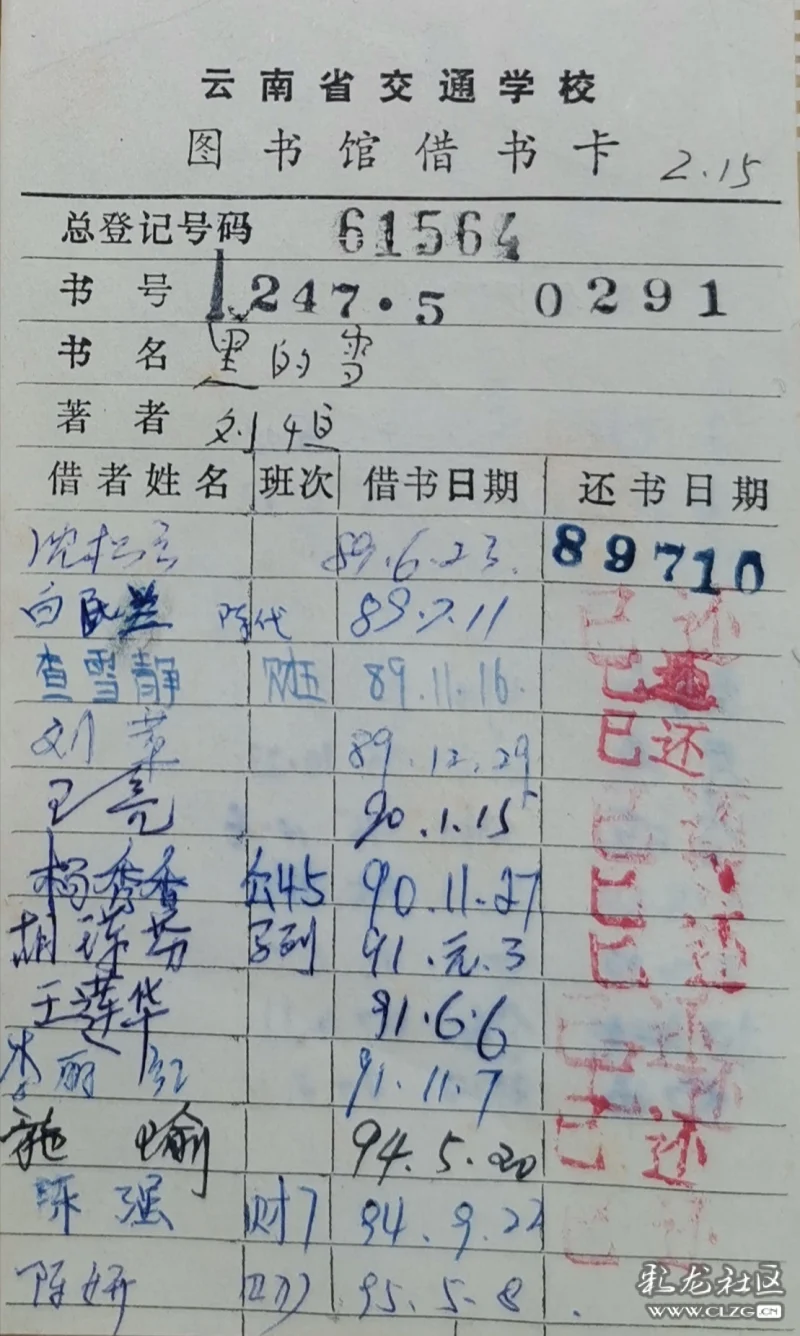 云南省交通学校
图书馆借书卡 2.15
总登记号码 61564
书号 I247.5 0291
书名 黑的雪
著者 刘恒
借者姓名 班次 借书日期 还书日期
89.6.23. 89710
白 89.7.11 已还
查雪静 财五 89.11.16. 已还
刘 89.12.29 已还
王亮 90.1.15 已还
杨秀香 公45 90.11.27 已
胡 91.元.3 已还
王莲华 91.6.6 已还
李丽红 91.11.7 还
施愉 94.5.20 已还
陈强 财7 94.9.22 已还
陈妍 95.5.8
彩龙社区
WWW.CLZG.CN